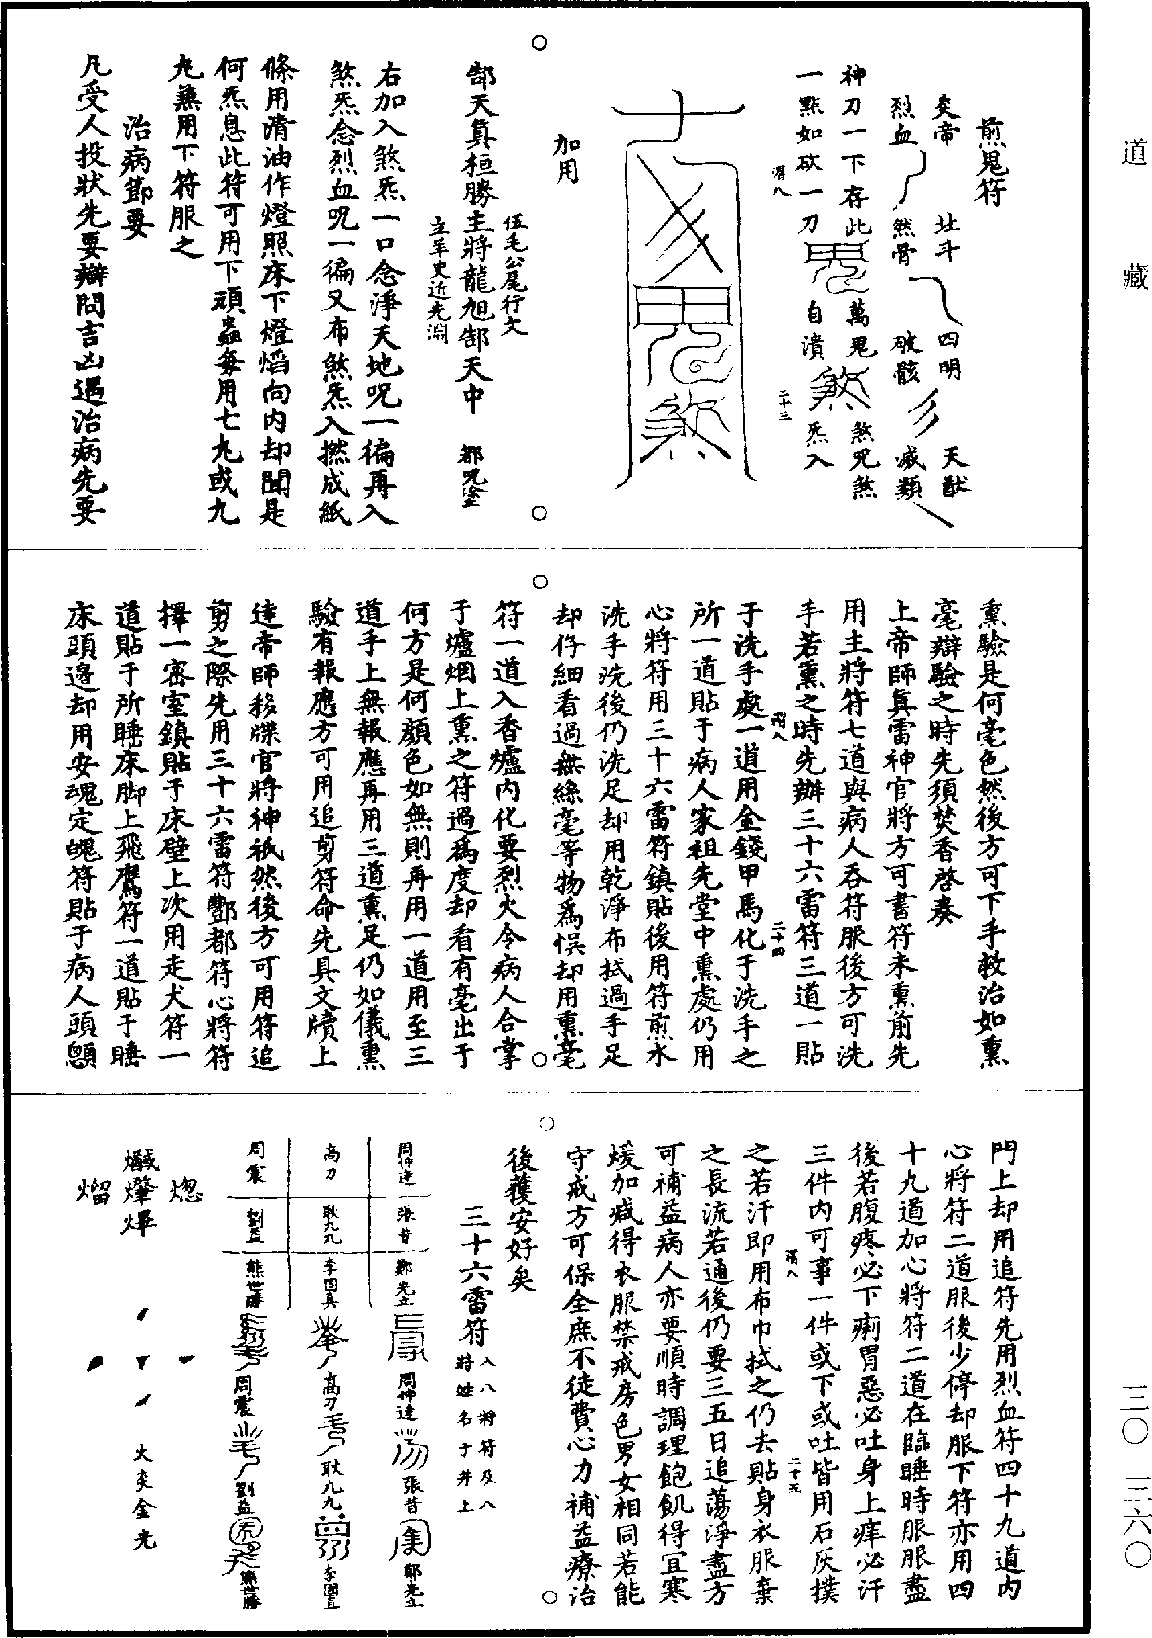 道藏
煎鬼符
炎帝
烈血
北斗
然骨
四明
破骸
天猷
滅類
神刀一下存此
萬鬼
煞咒煞
一點如砍一刀
自潰
炁入
加用
伍毛公尾行文
郜天真桓勝主將龍旭郜天中
都咒塗
右加入煞炁一口念淨天地咒一徧再入
煞炁念烈血咒一徧又布煞炁入撚成紙
條用清油作燈照床下燈熖向内却聞是
何炁息此符可用下頑蟲每用七丸或九
丸無用下符服之
治病節要
凡受人投狀先要辯問吉凶過治病先要
熏驗是何毫色然後方可下手救治如熏
毫辯驗之時先須焚香啓奏
上帝師真雷神官將方可書符未熏前先
用主將符七道與病人吞符服後方可洗
手若熏之時先辦三十六雷符三道一貼
于洗手處一道用金錢甲馬化于洗手之
所一道貼于病人家祖先堂中熏處仍用
心將符用三十六雷符鎮貼後用符煎水
洗手洗後仍洗足却用乾淨布拭過手足
却仔細看過無絲毫等物爲悮却用熏毫
符一道入香爐内化要烈火令病人合掌
于爐烟上熏之符過爲度却看有毫出于
何方是何顏色如無則再用一道用至三
道手上無報應再用三道熏足仍如儀熏
驗有報應方可用追剪符命先具文牘上
達帝師移牒官將神祇然後方可用符追
剪之際先用三十六雷符酆都符心將符
擇一密室鎮貼于床壁上次用走犬符一
道貼于所睡床脚上飛鷹符一道貼于睡
床頭邊却用安魂定魄符貼于病人頭顖
門上却用追符先用烈血符四十九道内
心將符二道服後少停却服下符亦用四
十九道加心將符二道在臨睡時服服盡
後若腹疼必下痢胃惡必吐身上痒必汗
三件内可事一件或下或吐皆用石灰撲
之若汗即用布巾拭之仍去貼身衣服棄
之長流若通後仍要三五日追蕩淨盡方
可補益病人亦要順時調理飽飢得宜寒
煖加减得衣服禁戒房色男女相同若能
守戒方可保全庶不徒費心力補益療治
後獲安好矣
三十六雷符
入八將符及八
將姓名于井上
周仲達
張昔
鄭先立
高刀
耿九九
李固真
周震
劉益
熊世勝
周仲達
張昔
鄭先立
高刀
耿九九
李固真
周震
劉益
熊世勝
火炎金光
三〇
三六〇